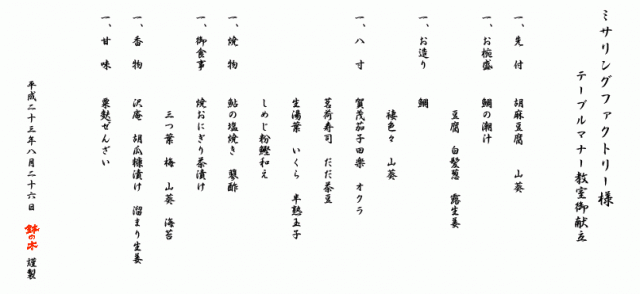 ミサリングファクトリー様
テーブルマナー教室御献立
一、先付 胡麻豆腐 山葵
一、お椀盛 鯛の潮汁
豆腐 白髪葱 露生姜
一、お造り 鯛
褄色々 山葵
一、八寸 賀茂茄子田楽 オクラ
茗荷寿司 だだ茶豆
生湯葉 いくら 半熟玉子
しめじ粉鰹和え
一、焼物 鮎の塩焼き 蓼酢
一、御食事 焼おにぎり茶漬け
三つ葉 梅 山葵 海苔
一、香物 沢庵 胡瓜糠漬け 溜まり生姜
一、甘味 粟麩ぜんざい
平成二十三年八月二十六日 鉢の木 謹製